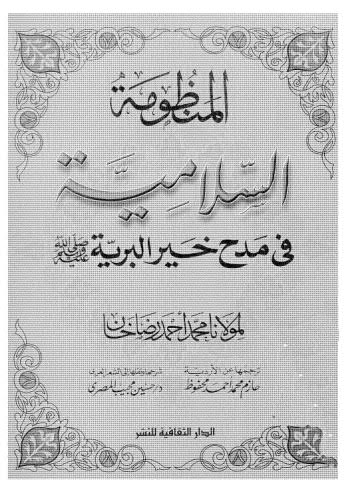 المنظومة
السلامية
فى مدح خير البرية ﷺ
لمولانا محمد أحمد رضا خان
ترجمها عن الأردية
حازم محمد أحمد محفوظ
شرحها ونقلها إلى الشعر العربى
د/ حسين مجيب المصرى
الدار الثقافية للنشر